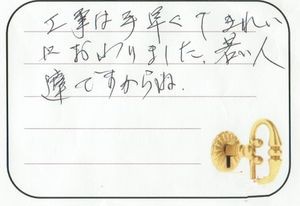 工事は手早くてきれい
におわりました。若い人
達ですからね.